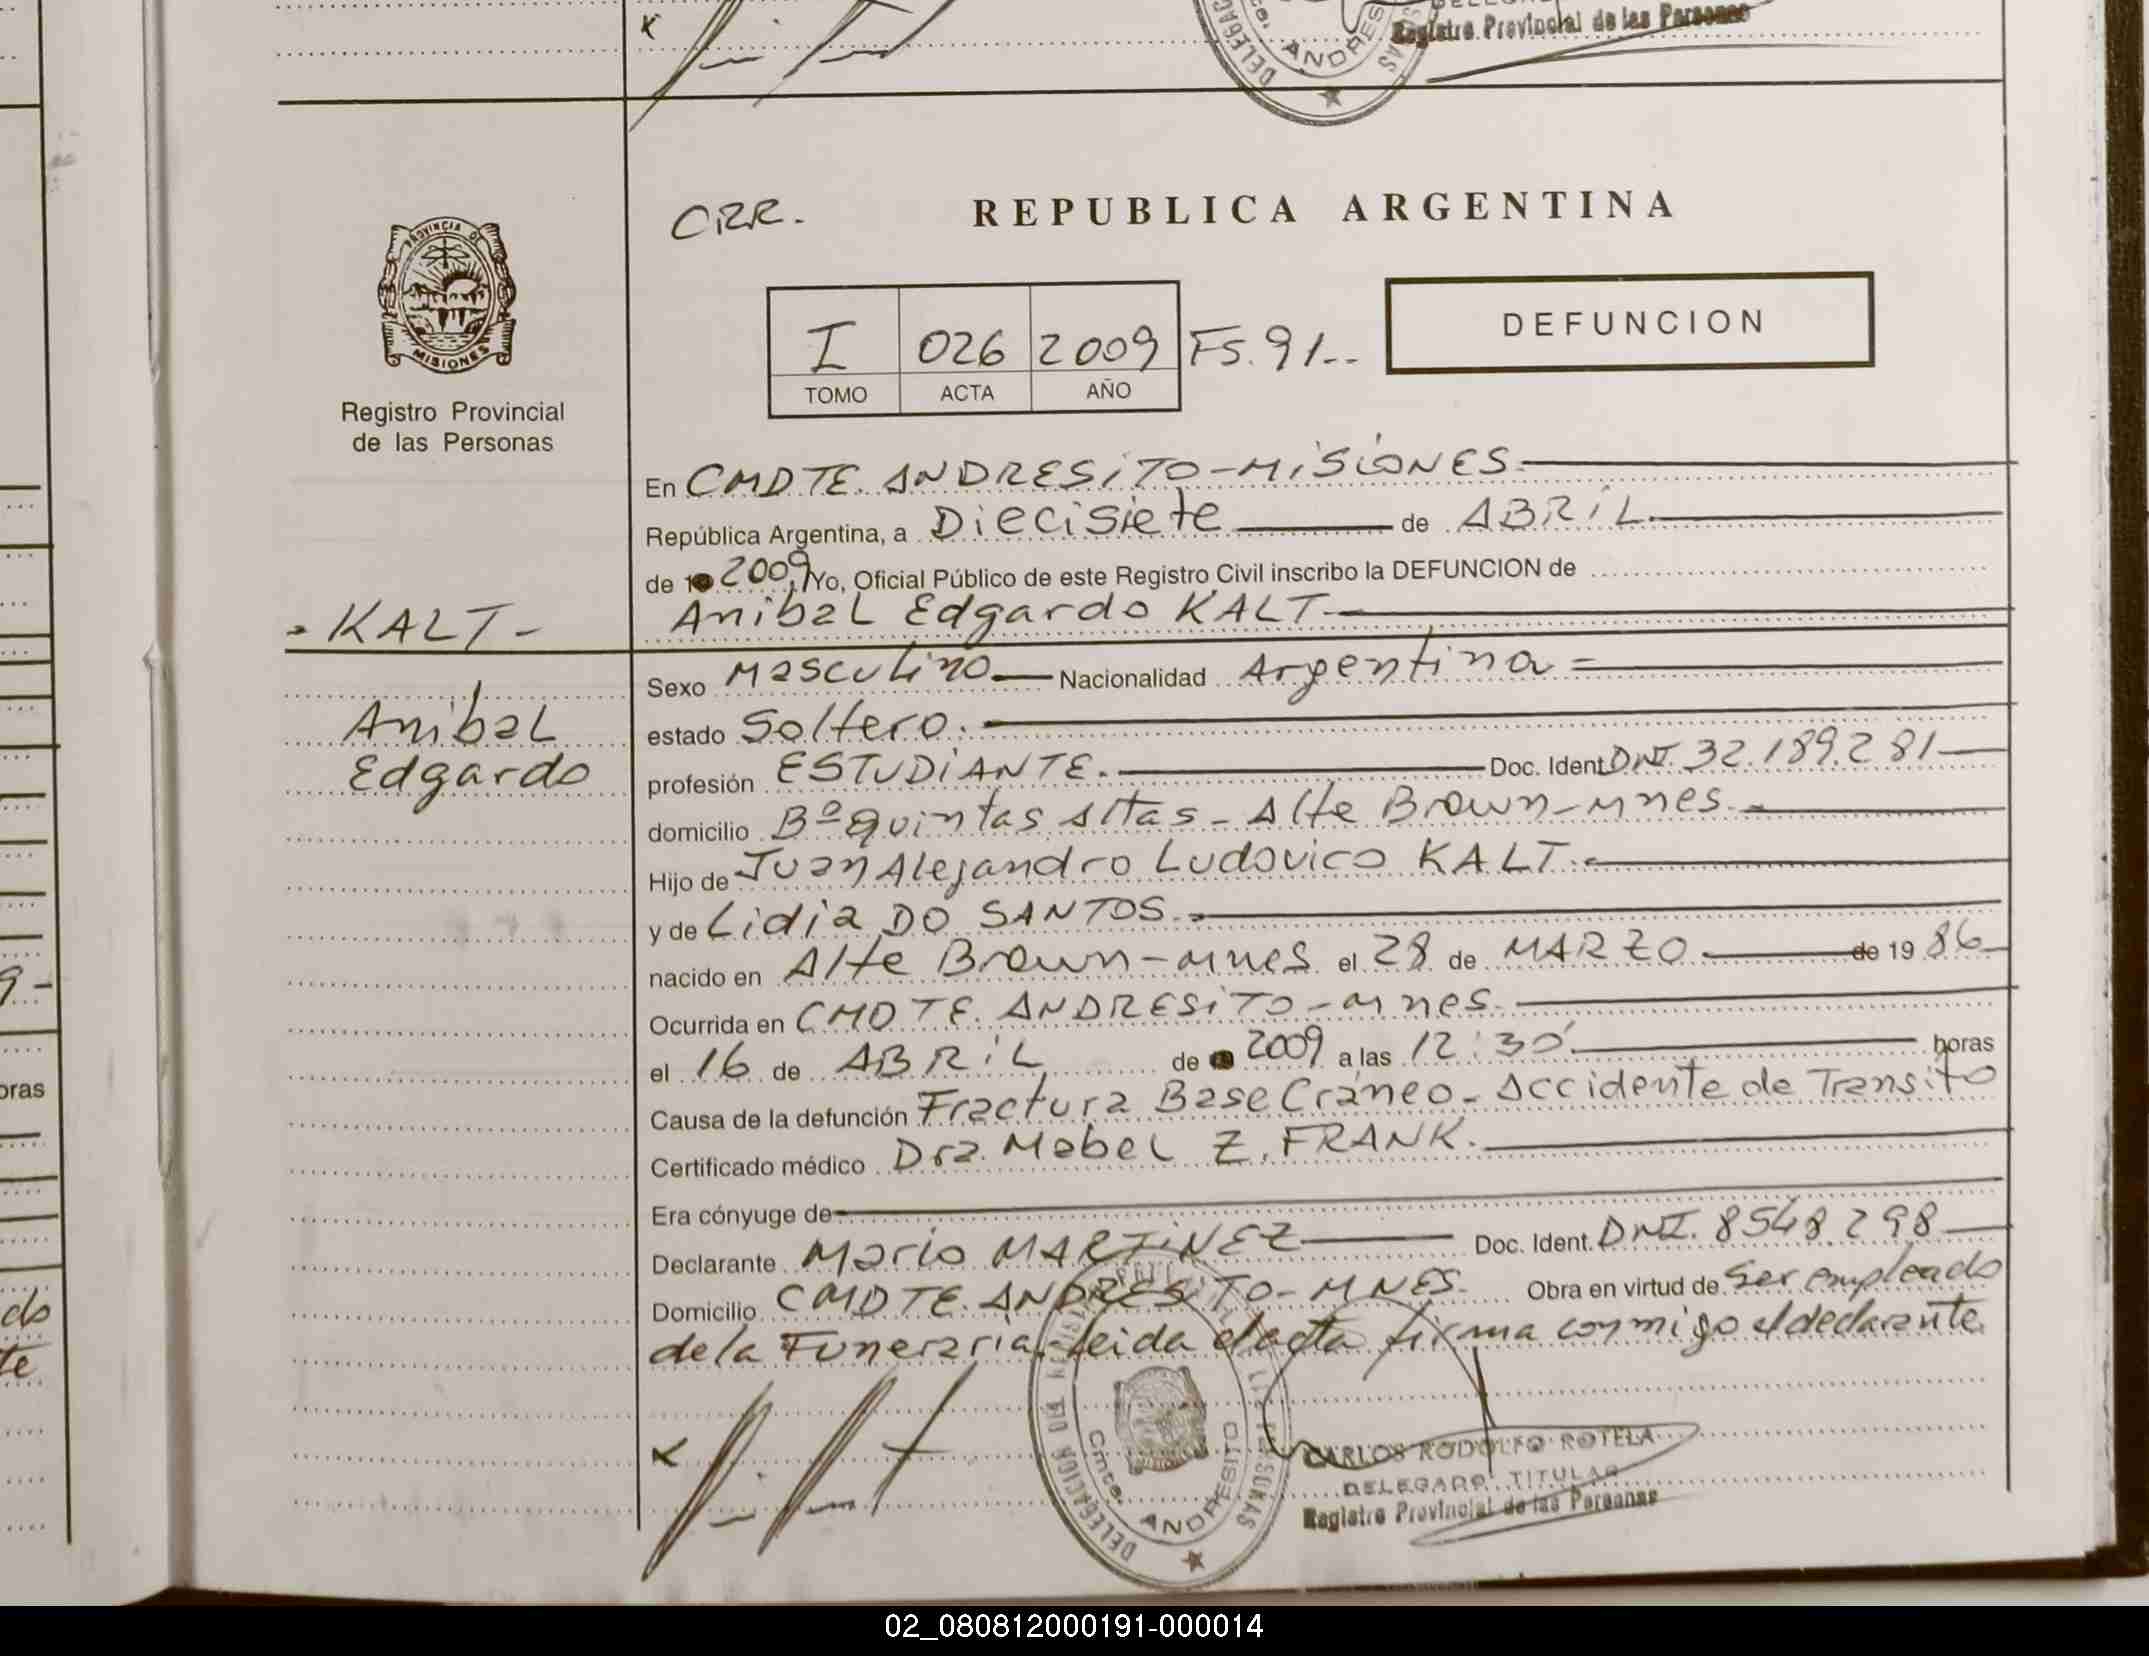 Registro Provincial de las Personas
DELEGAC
ANDRES
CRR.
REPUBLICA ARGENTINA
PROVINCIA DE
MISIONES
Registro Provincial
de las Personas
I 026 2009 Fs. 91--
TOMO ACTA AÑO
DEFUNCION
En CMDTE. ANDRESITO - MISIONES.
República Argentina, a Diecisiete de ABRIL
de 2009, Yo, Oficial Público de este Registro Civil inscribo la DEFUNCION de
Anibal Edgardo KALT
- KALT -
Anibal
Edgardo
Sexo Masculino Nacionalidad Argentina =
estado Soltero.
profesión ESTUDIANTE. Doc. Ident. DNI. 32.189.281
domicilio Bº quintas Altas - Alte Brown - mnes.
Hijo de Juan Alejandro Ludovico KALT.
y de Lidia DO SANTOS.
nacido en Alte Brown - mnes el 28 de MARZO de 19 86
Ocurrida en CMDTE. ANDRESITO - mnes.
el 16 de ABRIL de 2009 a las 12:30 horas
Causa de la defunción Fractura Base Cráneo - Accidente de Transito
Certificado médico Dra. Mabel Z. FRANK.
Era cónyuge de
Declarante Mario MARTINEZ Doc. Ident. DNI. 8548298
Domicilio CMDTE. ANDRESITO - MNES. Obra en virtud de Ser empleado
de la Funeraria. Leida el acta firma conmigo el declarante
DELEGACION DEL REGISTRO
PERSONAS
Cmte. ANDRESITO
CARLOS RODOLFO ROTELA
DELEGADO TITULAR
Registro Provincial de las Personas
oras
do
te
02_080812000191-000014